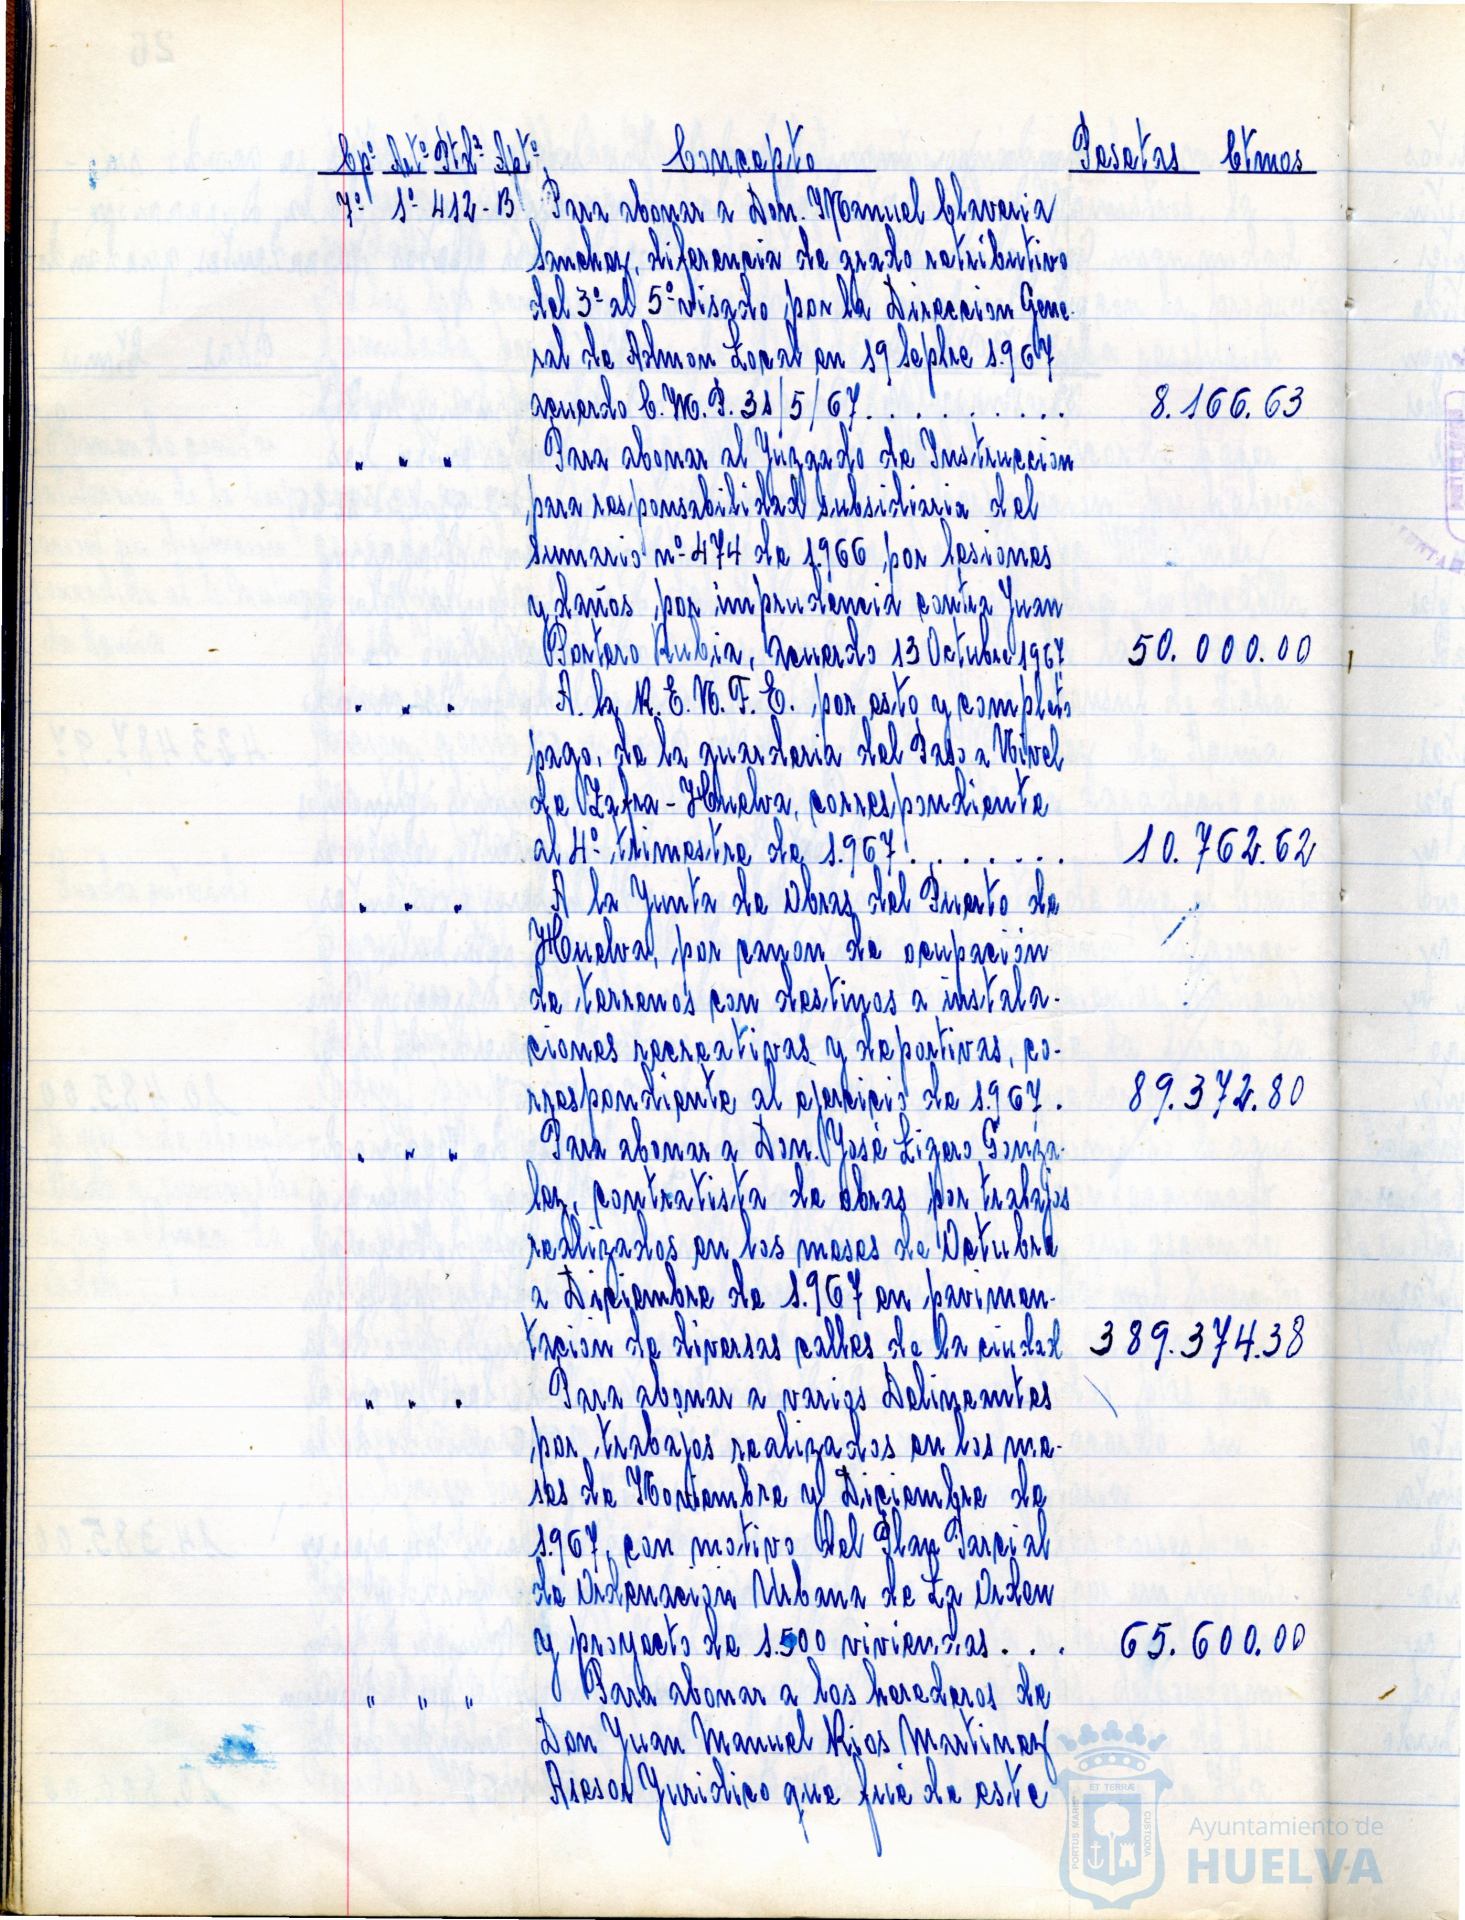 Cpº Artº Ptdª Aptº Concepto Pesetas Ctmos
7º 1º 412-B Para abonar a Don. Manuel Claveria
Sanchez, diferencia de grado retributivo
del 3º al 5º visado por la Direccion Gene-
ral de Admon Local en 19 Sepbre 1.967
acuerdo C.M.P. 31/5/67.......... 8.166.63
" " " Para abonar al Juzgado de Instruccion
para responsabilidad subsidiaria del
Sumario nº 474 de 1.966, por lesiones
y daños por imprudencia contra Juan
Portero Rubia, acuerdo 13 Octubre 1967 50.000.00
" " " A. la R.E.N.F.E., por esto y completo
pago, de la guarderia del Paso a Nivel
de Zafra-Huelva, correspondiente
al 4º trimestre de 1.967....... 10.762.62
" " " A la Junta de Obras del Puerto de
Huelva, por canon de ocupación
de terrenos con destinos a instala-
ciones recreativas y deportivas, co-
rrespondiente al ejercicio de 1.967. 89.372.80
" " " Para abonar a Don. José Lizero Gonza-
lez, contratista de obras por trabajos
realizados en los meses de Octubre
a Diciembre de 1.967 en pavimen-
tación de diversas calles de la ciudad 389.374.38
" " " Para abonar a varios Delineantes
por trabajos realizados en los me-
ses de Noviembre y Diciembre de
1.967, con motivo del Plan Parcial
de Ordenación Urbana de La Orden
y proyecto de 1.500 viviendas... 65.600.00
" " " Para abonar a los herederos de
Don Juan Manuel Rios Martinez
Asesor Juridico que fué de este
ET TERRÆ
PORTUS MARIS
CUSTODIA
Ayuntamiento de
HUELVA